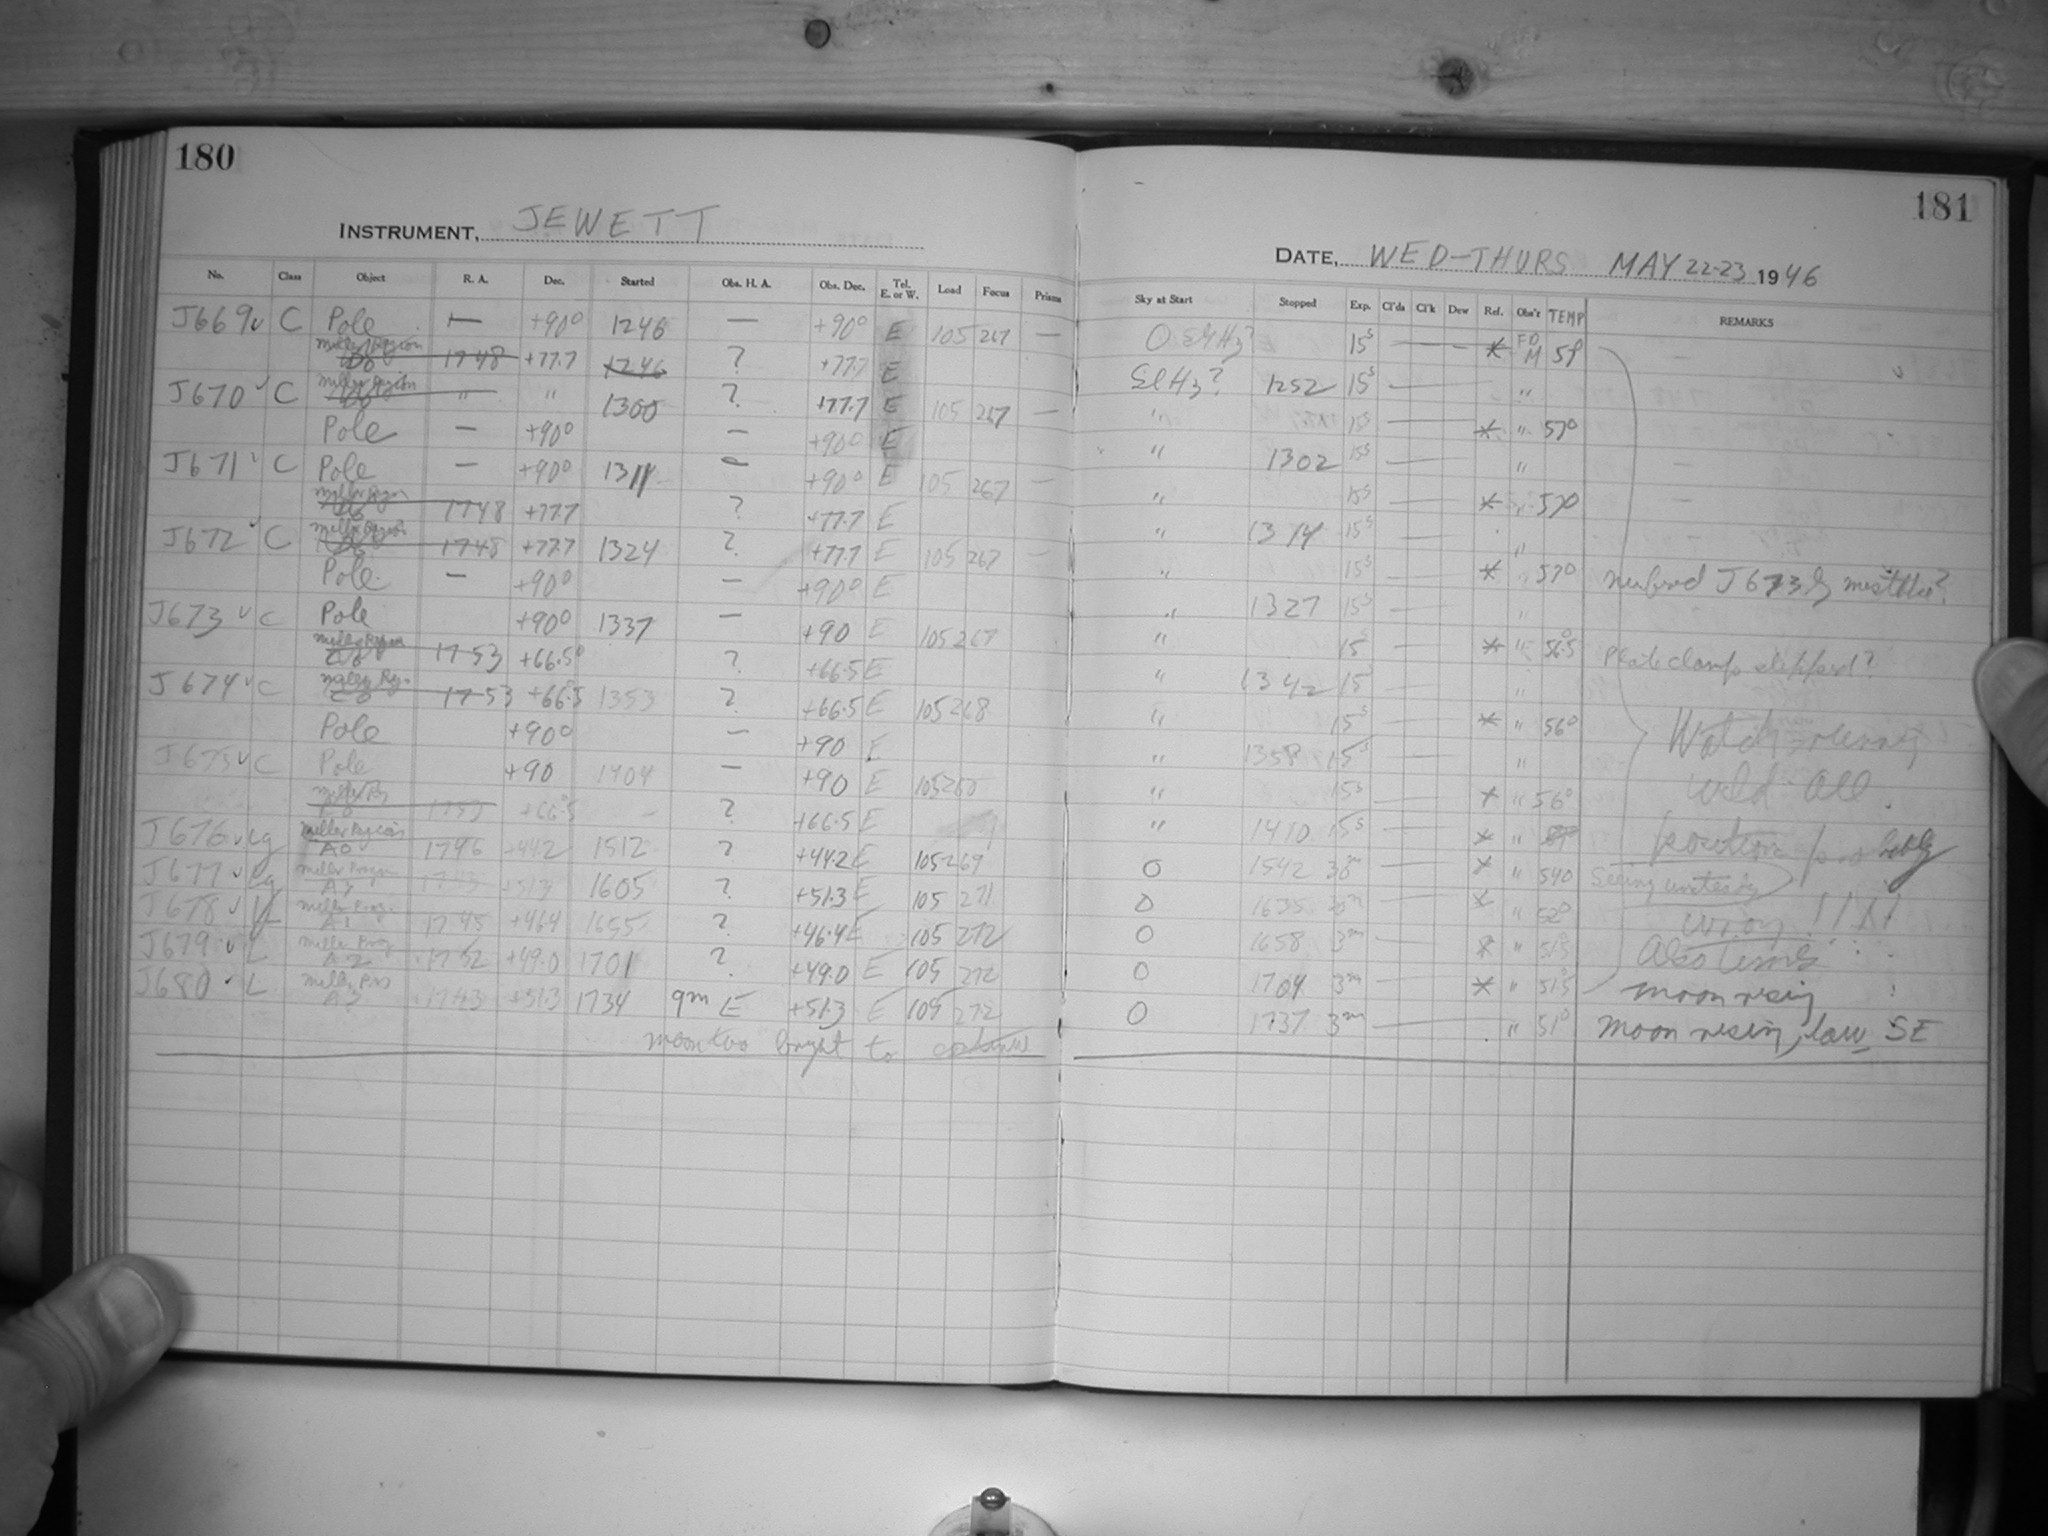 180
181
INSTRUMENT, JEWETT
DATE, WED-THURS MAY 22-23 1946
No. Class Object R. A. Dec. Started Obs. H. A. Obs. Dec. Tel. E. or W. Load Focus Prisms
Sky at Start Stopped Exp. Cl'ds Cl'k Dew Ref. Obs'r TEMP REMARKS
J669 C Pole — +90° 1246 — +90° E 105 267 —
15s — * FD M
Miller Region 1748 +77.7 1246 ? +77.7 E
1252 15s — "
J670 C Miller Region " " 1300 ? +77.7 E 105 267 —
" 15s — * " 57°
Pole — +90° — +90° E
" 1302 15s — "
J671 C Pole — +90° 1311 — +90° E 105 267 —
" 15s — * " 57°
Miller Region 1748 +77.7 ? +77.7 E
" 1314 15s — "
J672 C Miller Region 1748 +77.7 1324 ? +77.7 E 105 267 —
" 15s — * " 57° J673 by
Pole — +90° — +90° E
" 1327 15s — "
J673 C Pole +90° 1337 — +90 E 105 267
" 15 — * " 56.5 Plate clamp slipped?
Miller Region 1753 +66.5° ? +66.5 E
" 1342 15 — "
J674 C Miller Reg. 1753 +66.5 1353 ? +66.5 E 105 268
" 15s — * " 56°
Pole +90° — +90 E
" 1358 15s — "
J675 C Pole +90 1404 — +90 E 105
" 15s — * " 56°
+66.5 ? +66.5 E
" 1410 15s — * "
J676 Lg Miller Region A0 1746 +44.2 1512 ? +44.2 E 105 269
O 1542 — * " 540 Seeing unsteady
J677 Lg Miller Region 1743 +51.3 1605 ? +51.3 E 105 271
O 1635 — * " 52°
J678 L Miller Reg. A1 1745 +46.4 1655 ? +46.4 E 105 272
O 1658 3m — * " 51.5
J679 L Miller Reg A2 1752 +49.0 1701 ? +49.0 E 105 272
O 1704 3m — * " 51.5 moon rising
J680 L Miller Reg 1743 +51.3 1734 9m E +51.3 E 105 272
O 1737 3m — " 51° moon rising, low SE
Watch running
wild all
position probably
wrong !!!!
Also times
moon too bright to continue